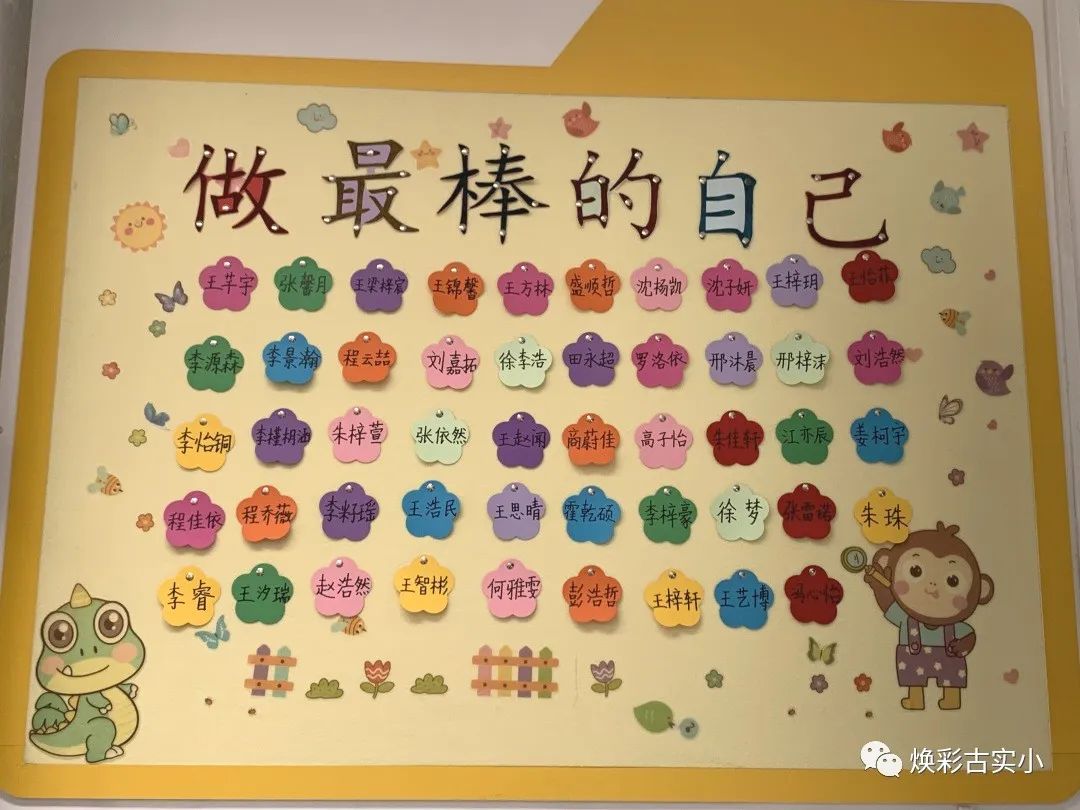 做最棒的自己
王芊宇 张馨月 王梁梓宸 王锦馨 王方林 盛顺哲 沈杨凯 沈子妍 王梓玥 王怡菲
李源森 李景瀚 程云喆 刘嘉拓 徐李浩 田永超 罗洛依 邢沐晨 邢梓沫 刘浩然
李怡铜 李槿枂涵 朱梓萱 张依然 王赵闻 商蔚佳 高子怡 朱佳轩 江亦辰 姜柯宇
程佳依 程乔薇 李籽瑶 王浩民 王思晴 霍乾硕 李梓豪 徐梦 张雷诺 朱珠
李睿 王汐瑞 赵浩然 王智彬 何雅雯 彭浩哲 王梓轩 王艺博 冯心怡
焕彩古实小